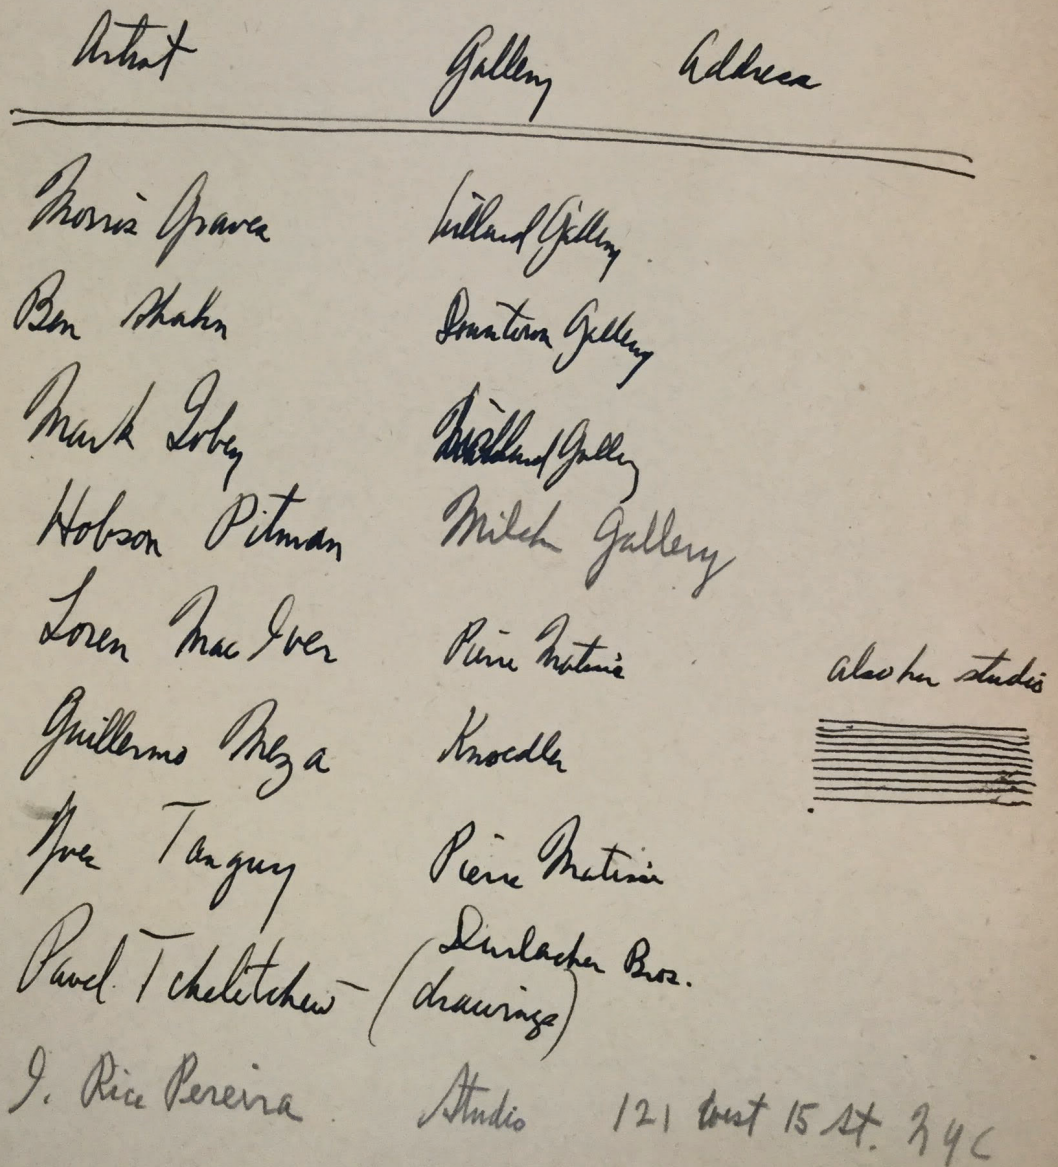 Artist Gallery Address
Morris Graves Willard Gallery
Ben Shahn Downtown Gallery
Mark Tobey Willard Gallery
Hobson Pitman Milch Gallery
Loren Mac Iver Pierre Matisse also her studio
Guillermo Meza Knoedler
Yves Tanguy Pierre Matisse
Pavel Tchelitchew - (drawings) Durlacher Bros.
I. Rice Pereira Studio 121 West 15 St. NYC